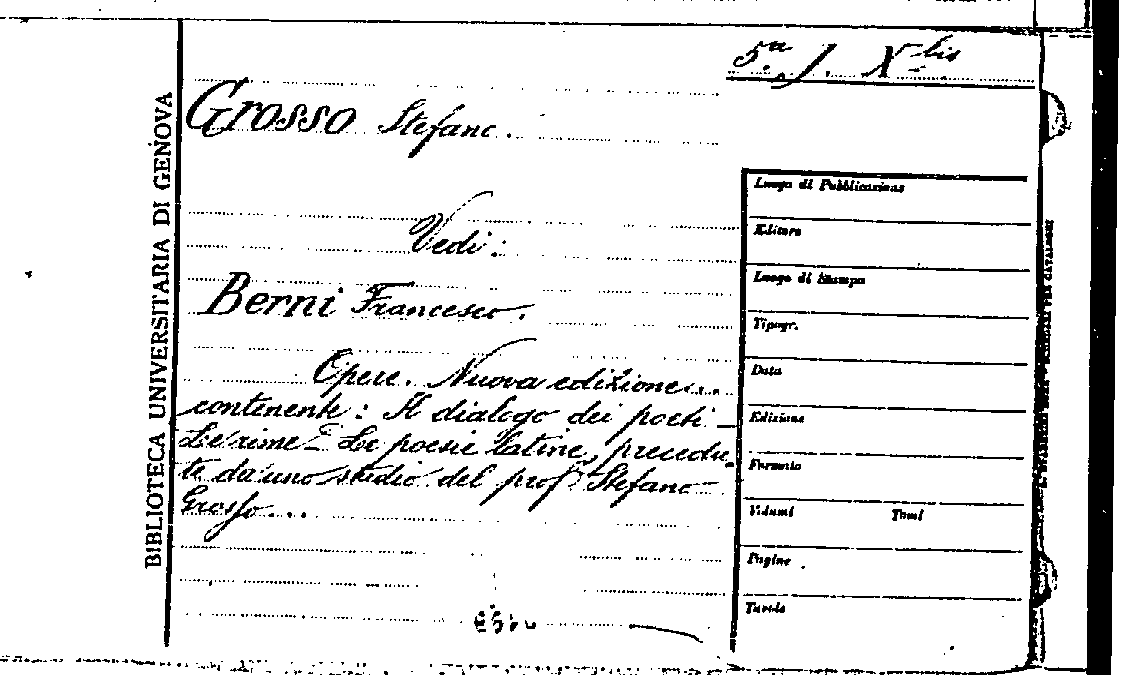 BIBLIOTECA UNIVERSITARIA DI GENOVA
5ª J. Xbis
Grosso Stefano.
Vedi:
Berni Francesco.
Opere. Nuova edizione...
contenente: Il dialogo dei poeti _
Le rime - Le poesie latine, precedu_
te da uno studio del prof. Stefano
Grosso...
Luogo di Pubblicazione
Editore
Luogo di Stampa
Tipogr.
Data
Edizione
Formato
Volumi Tomi
Pagine
Tavole